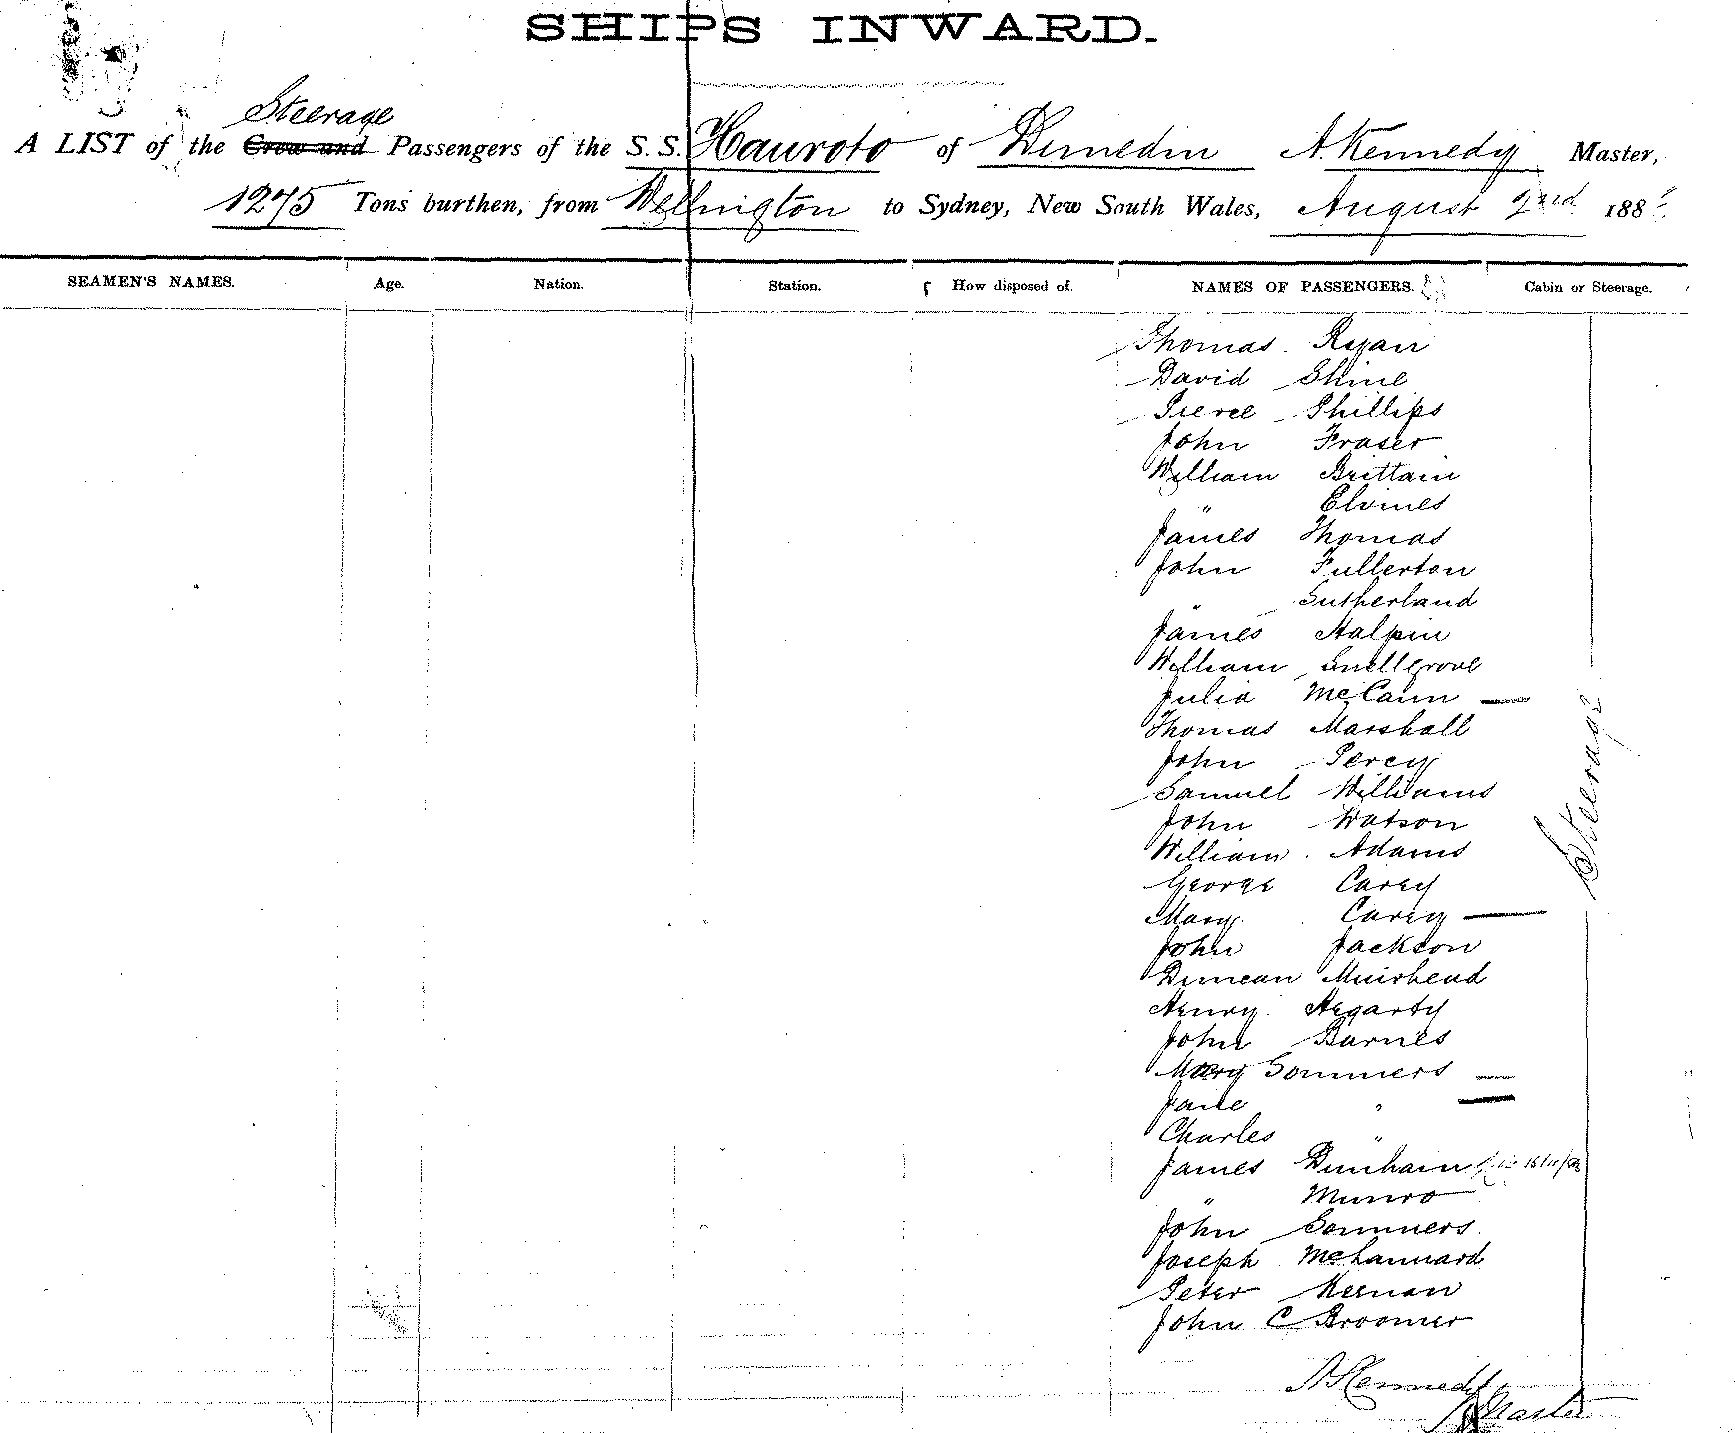 SHIPS INWARD.
Steerage
A LIST of the Crew and Passengers of the S.S. Hauroto of Dunedin A. Kennedy Master,
1275 Tons burthen, from Wellington to Sydney, New South Wales, August 2nd 188
SEAMEN'S NAMES. Age. Nation. Station. How disposed of. NAMES OF PASSENGERS. Cabin or Steerage.
Thomas Ryan
David Shine
Pierce Phillips
John Fraser
William Brittain
" Elvines
James Thomas
John Fullerton
" Sutherland
James Halpin
William Snellgrove
Julia McCann —
Thomas Marshall
John Percy
Samuel Williams
John Watson
William Adams
George Carey
Mary Carey —
John Jackson
Duncan Muirhead
Henry Hegarty
John Barnes
Mary Sommers —
Jane " —
Charles "
James Dunham
" Munro
John Sommers
Joseph
Peter Kernan
John C Broomer
Steerage
A Kennedy
Master